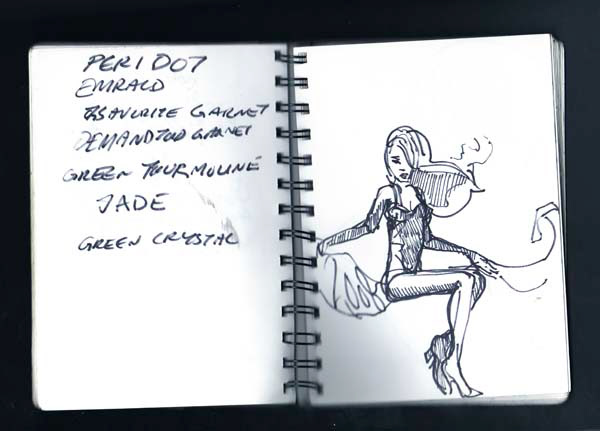 PERIDOT
EMRALD
TSAVORITE GARNET
DEMANDTOID GARNET
GREEN TOURMOLINE
JADE
GREEN CRYSTAL